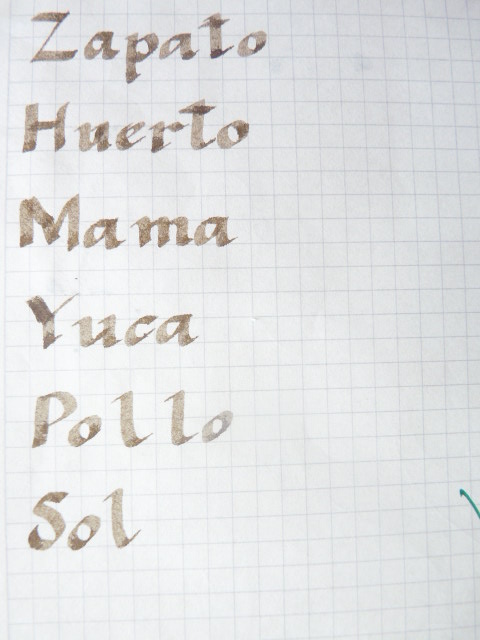 Zapato
Huerto
Mama
Yuca
Pollo
Sol